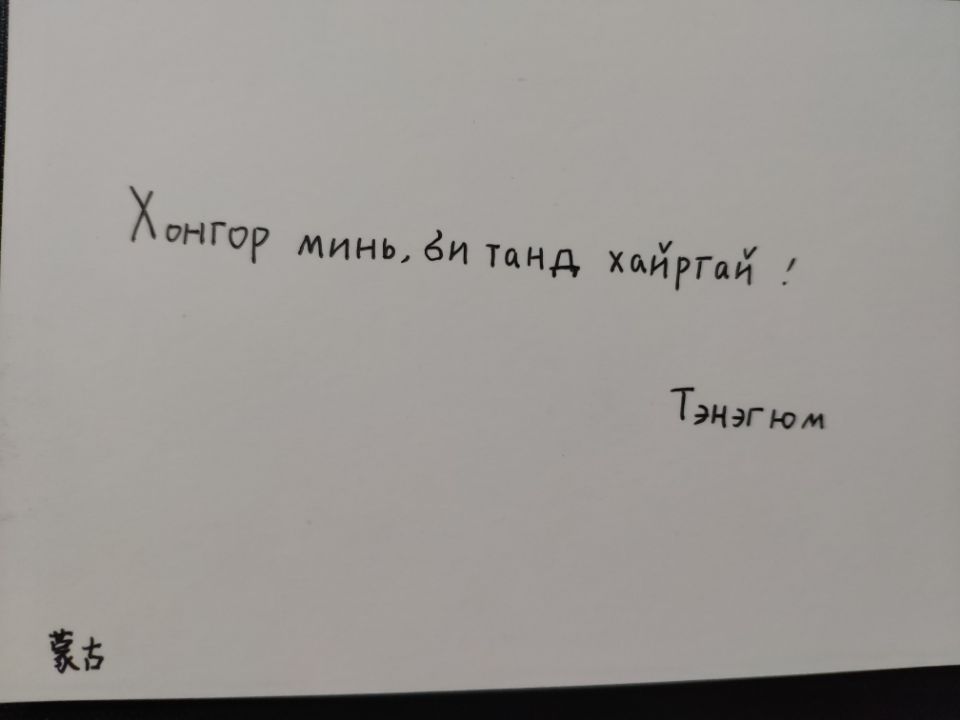 Хонгор минь, би танд хайртай !
Тэнэгюм
蒙古